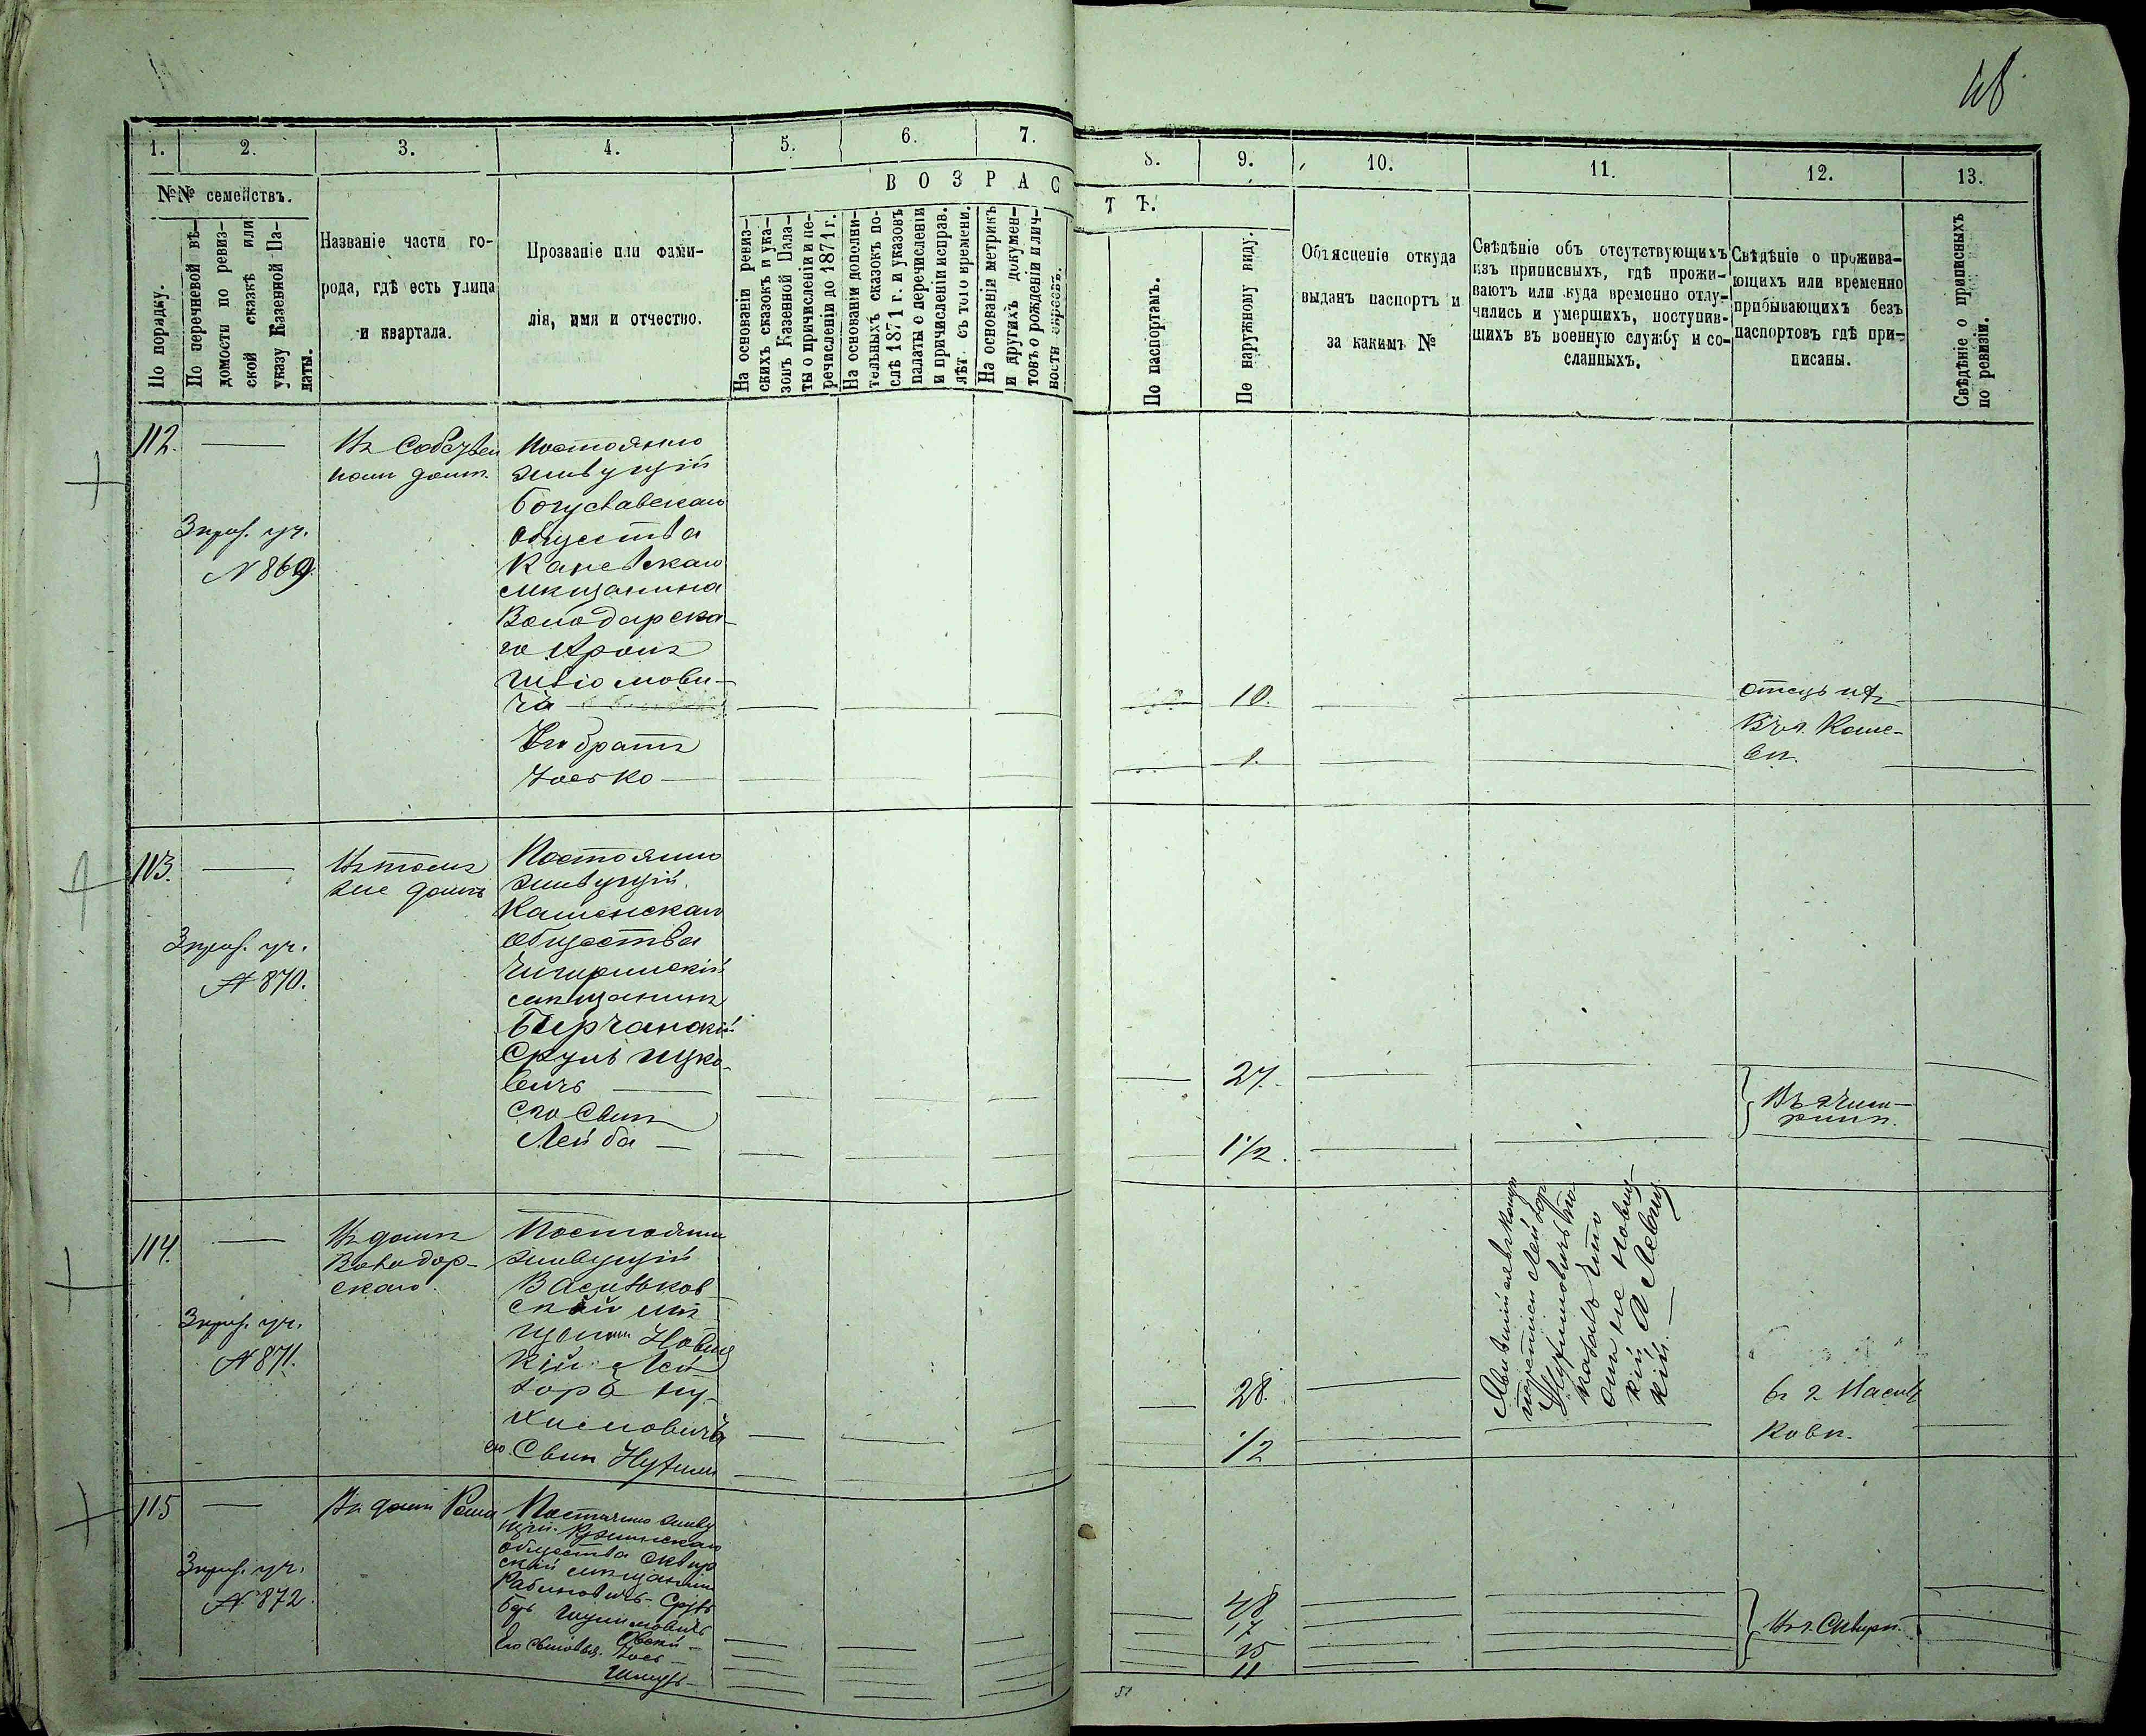 48
1.
2.
3.
4.
5.
6.
7.
8.
9.
10.
11.
12.
13.
№№ семействъ.
В О З Р А С
Т Ъ.
По порядку.
По перечневой вѣ-
домости по ревиз-
ской сказкѣ или
указу Казенной Па-
латы.
Названіе части го-
рода, гдѣ есть улица
и квартала.
Прозваніе или фами-
лія, имя и отчество.
На основаніи ревиз-
скихъ сказокъ и ука-
зовъ Казенной Пала-
ты о причисленіи и пе-
речисленіи до 1871 г.
На основаніи дополни-
тельныхъ сказокъ по-
слѣ 1871 г. и указовъ
палаты о перечисленіи
и причисленіи исправ.
лѣт съ того времени.
На основаніи метрикъ
и другихъ докумен-
товъ о рожденіи и лич-
ности евреевъ.
По паспортамъ.
По наружному виду.
Объясненіе откуда
выданъ паспортъ и
за какимъ №
Свѣдѣніе объ отсутствующихъ
изъ приписныхъ, гдѣ прожи-
ваютъ или куда временно отлу-
чились и умершихъ, поступив-
шихъ въ военную службу и со-
сланныхъ.
Свѣдѣніе о прожива-
ющихъ или временно
прибывающихъ безъ
паспортовъ гдѣ при-
писаны.
Свѣдѣніе о приписныхъ
по ревизіи.
112.
3 приз. уч.
№ 869.
Въ Собствен
номъ домѣ.
Постоянно
живущій
Богуславскаго
общества
Каневскаго
мѣщанина
Володарска-
го Аронъ
ча
Его братъ
Іосько
10.
1.
отецъ
113.
3 приз. уч.
№ 870.
Въ томъ
же домѣ
Постоянно
живущій
Каменскаго
общества
Чигиринскій
мѣщанинъ
Сруль
вичъ
его Сынъ
Лейба
27.
1 1/2.
Въ г. Чиги-
ринѣ.
114.
3 приз. уч.
№ 871.
Въ домѣ
Володар-
скаго.
Постоянно
живущій
Васильков
скій мѣ
щанинъ Новиц
кій
его Сынъ Нухимъ
28.
1/2
онъ не Новиц
кій а Левиц
кій.
в г. Василь
ковѣ.
115
3 приз. уч.
№ 872.
Въ домѣ
Постоянно живу
щій
общества Сквир
скій мѣщанинъ
Рабиновичъ Сруль
Беръ
Его сыновья
Шмуль
48
17
15
11
Въ г. Сквирѣ.
51